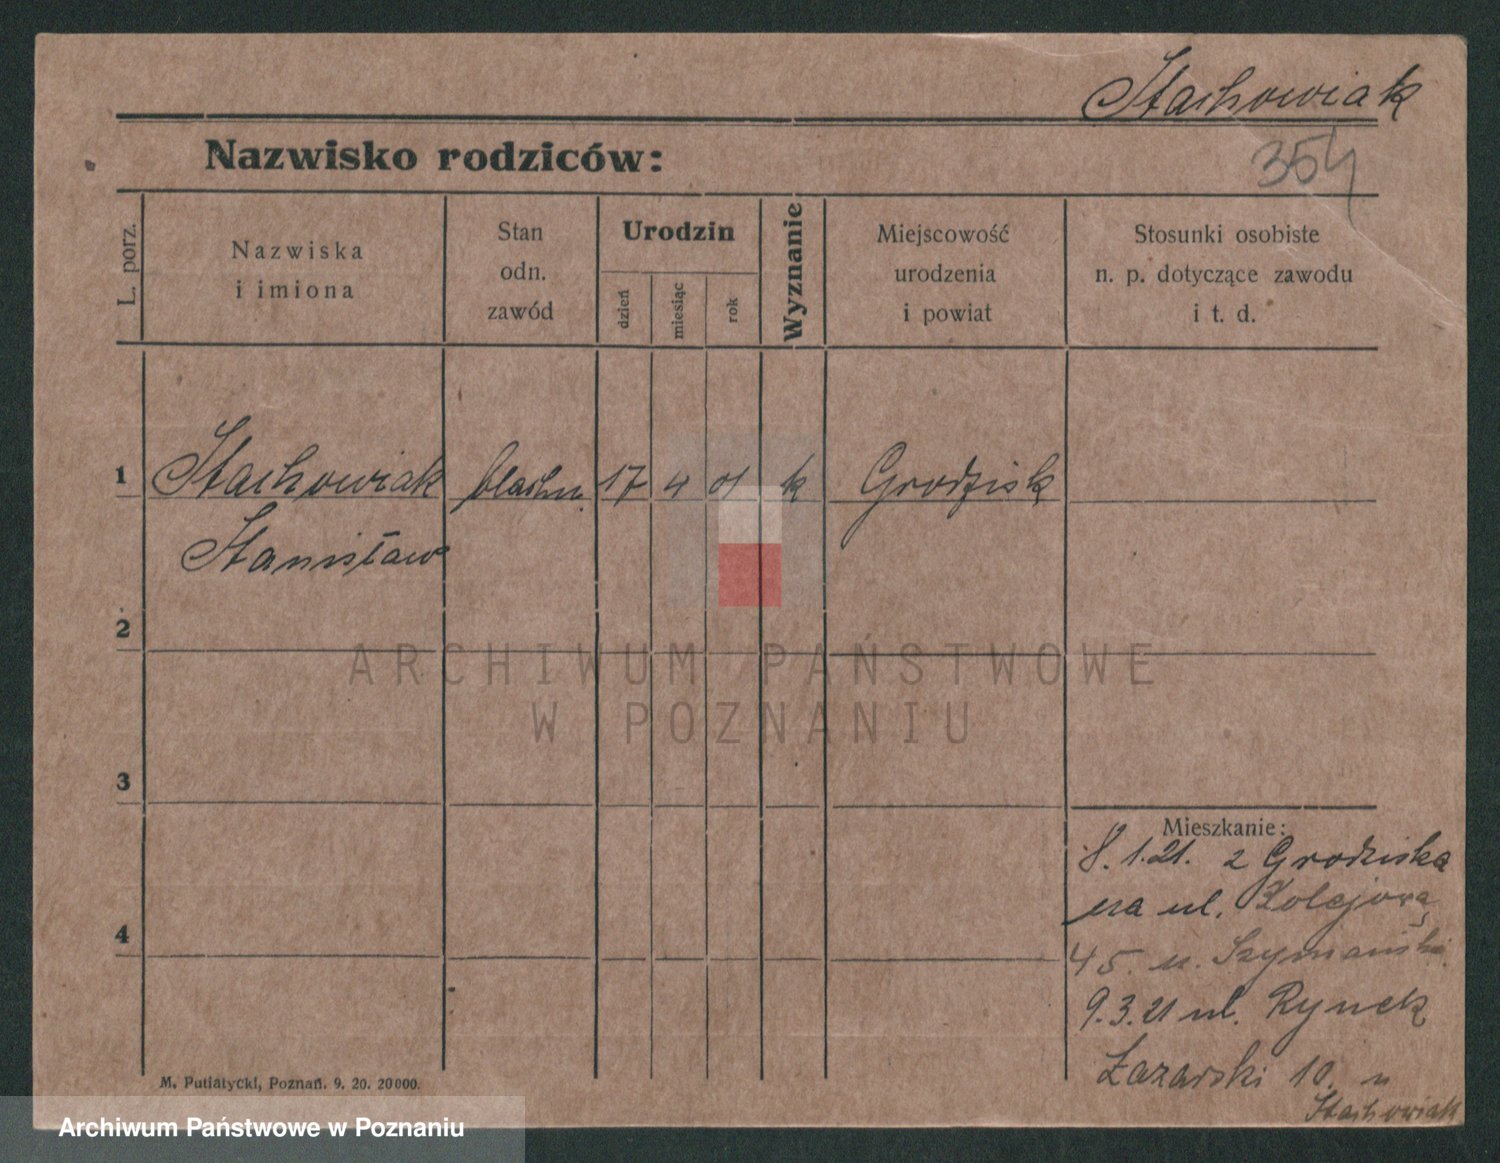 Stachowiak
Nazwisko rodziców:
354
L. porz.
Nazwiska
i imiona
Stan
odn.
zawód
Urodzin
dzień
miesiąc
rok
Wyznanie
Miejscowość
urodzenia
i powiat
Stosunki osobiste
n. p. dotyczące zawodu
i t. d.
1 Stachowiak blachn. 17 4 01 k Grodzisk
Stanisław
2
ARCHIWUM PAŃSTWOWE
W POZNANIU
3
Mieszkanie:
8.1.21. z Grodziska
na ul. Kolejową
4
45. u. Szymański
9.3.21 ul. Rynek
Łazarski 10. u
Stachowiak
M. Putiatycki, Poznań. 9. 20. 20000.
Archiwum Państwowe w Poznaniu